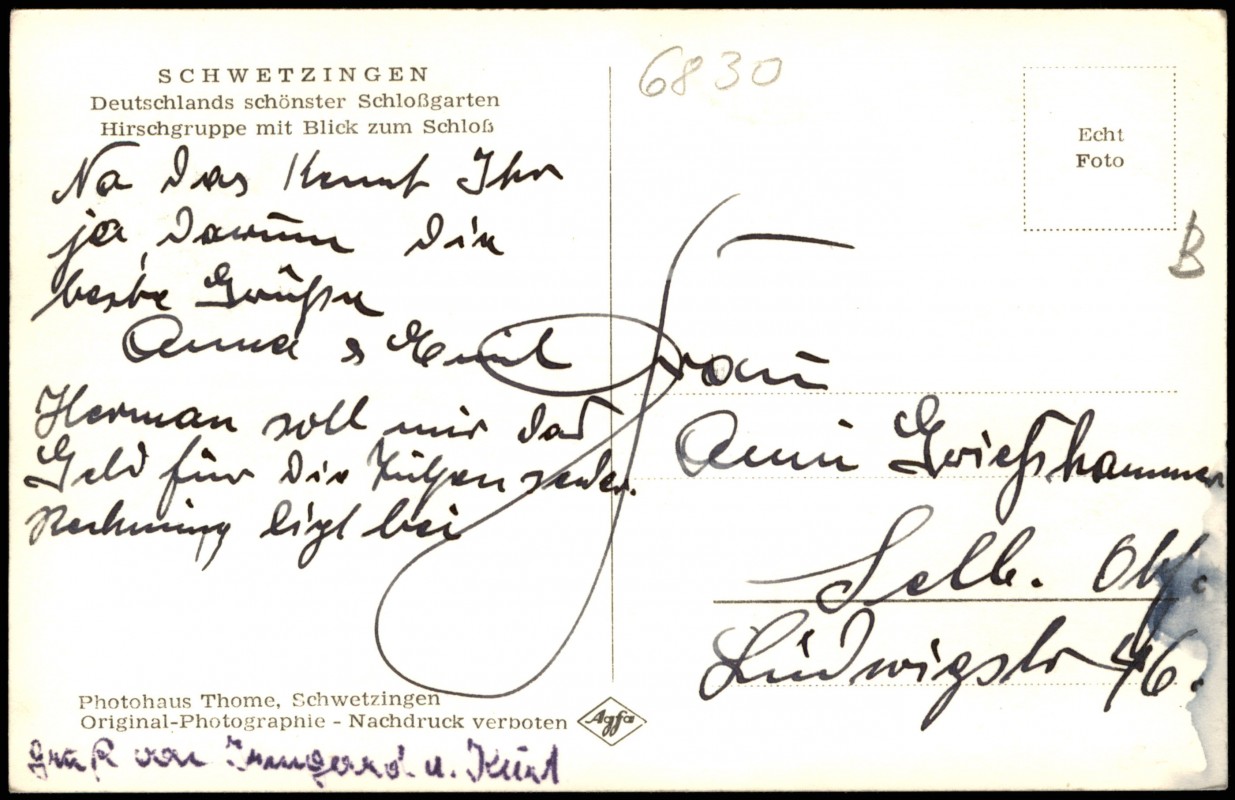 SCHWETZINGEN
Deutschlands schönster Schloßgarten
Hirschgruppe mit Blick zum Schloß
Na das kennt Ihr
ja, darum die
beste Grüße
Anna & Emil
Herman soll mir das
Geld für die senden.
Rechnung ligt bei
Photohaus Thome, Schwetzingen
Original-Photographie - Nachdruck verboten
Agfa
Gruß von Irmgard u. Kurt
6830
Echt
Foto
B
Frau
Anni Grießhammer
Selb. Ofr.
Ludwigstr 46.